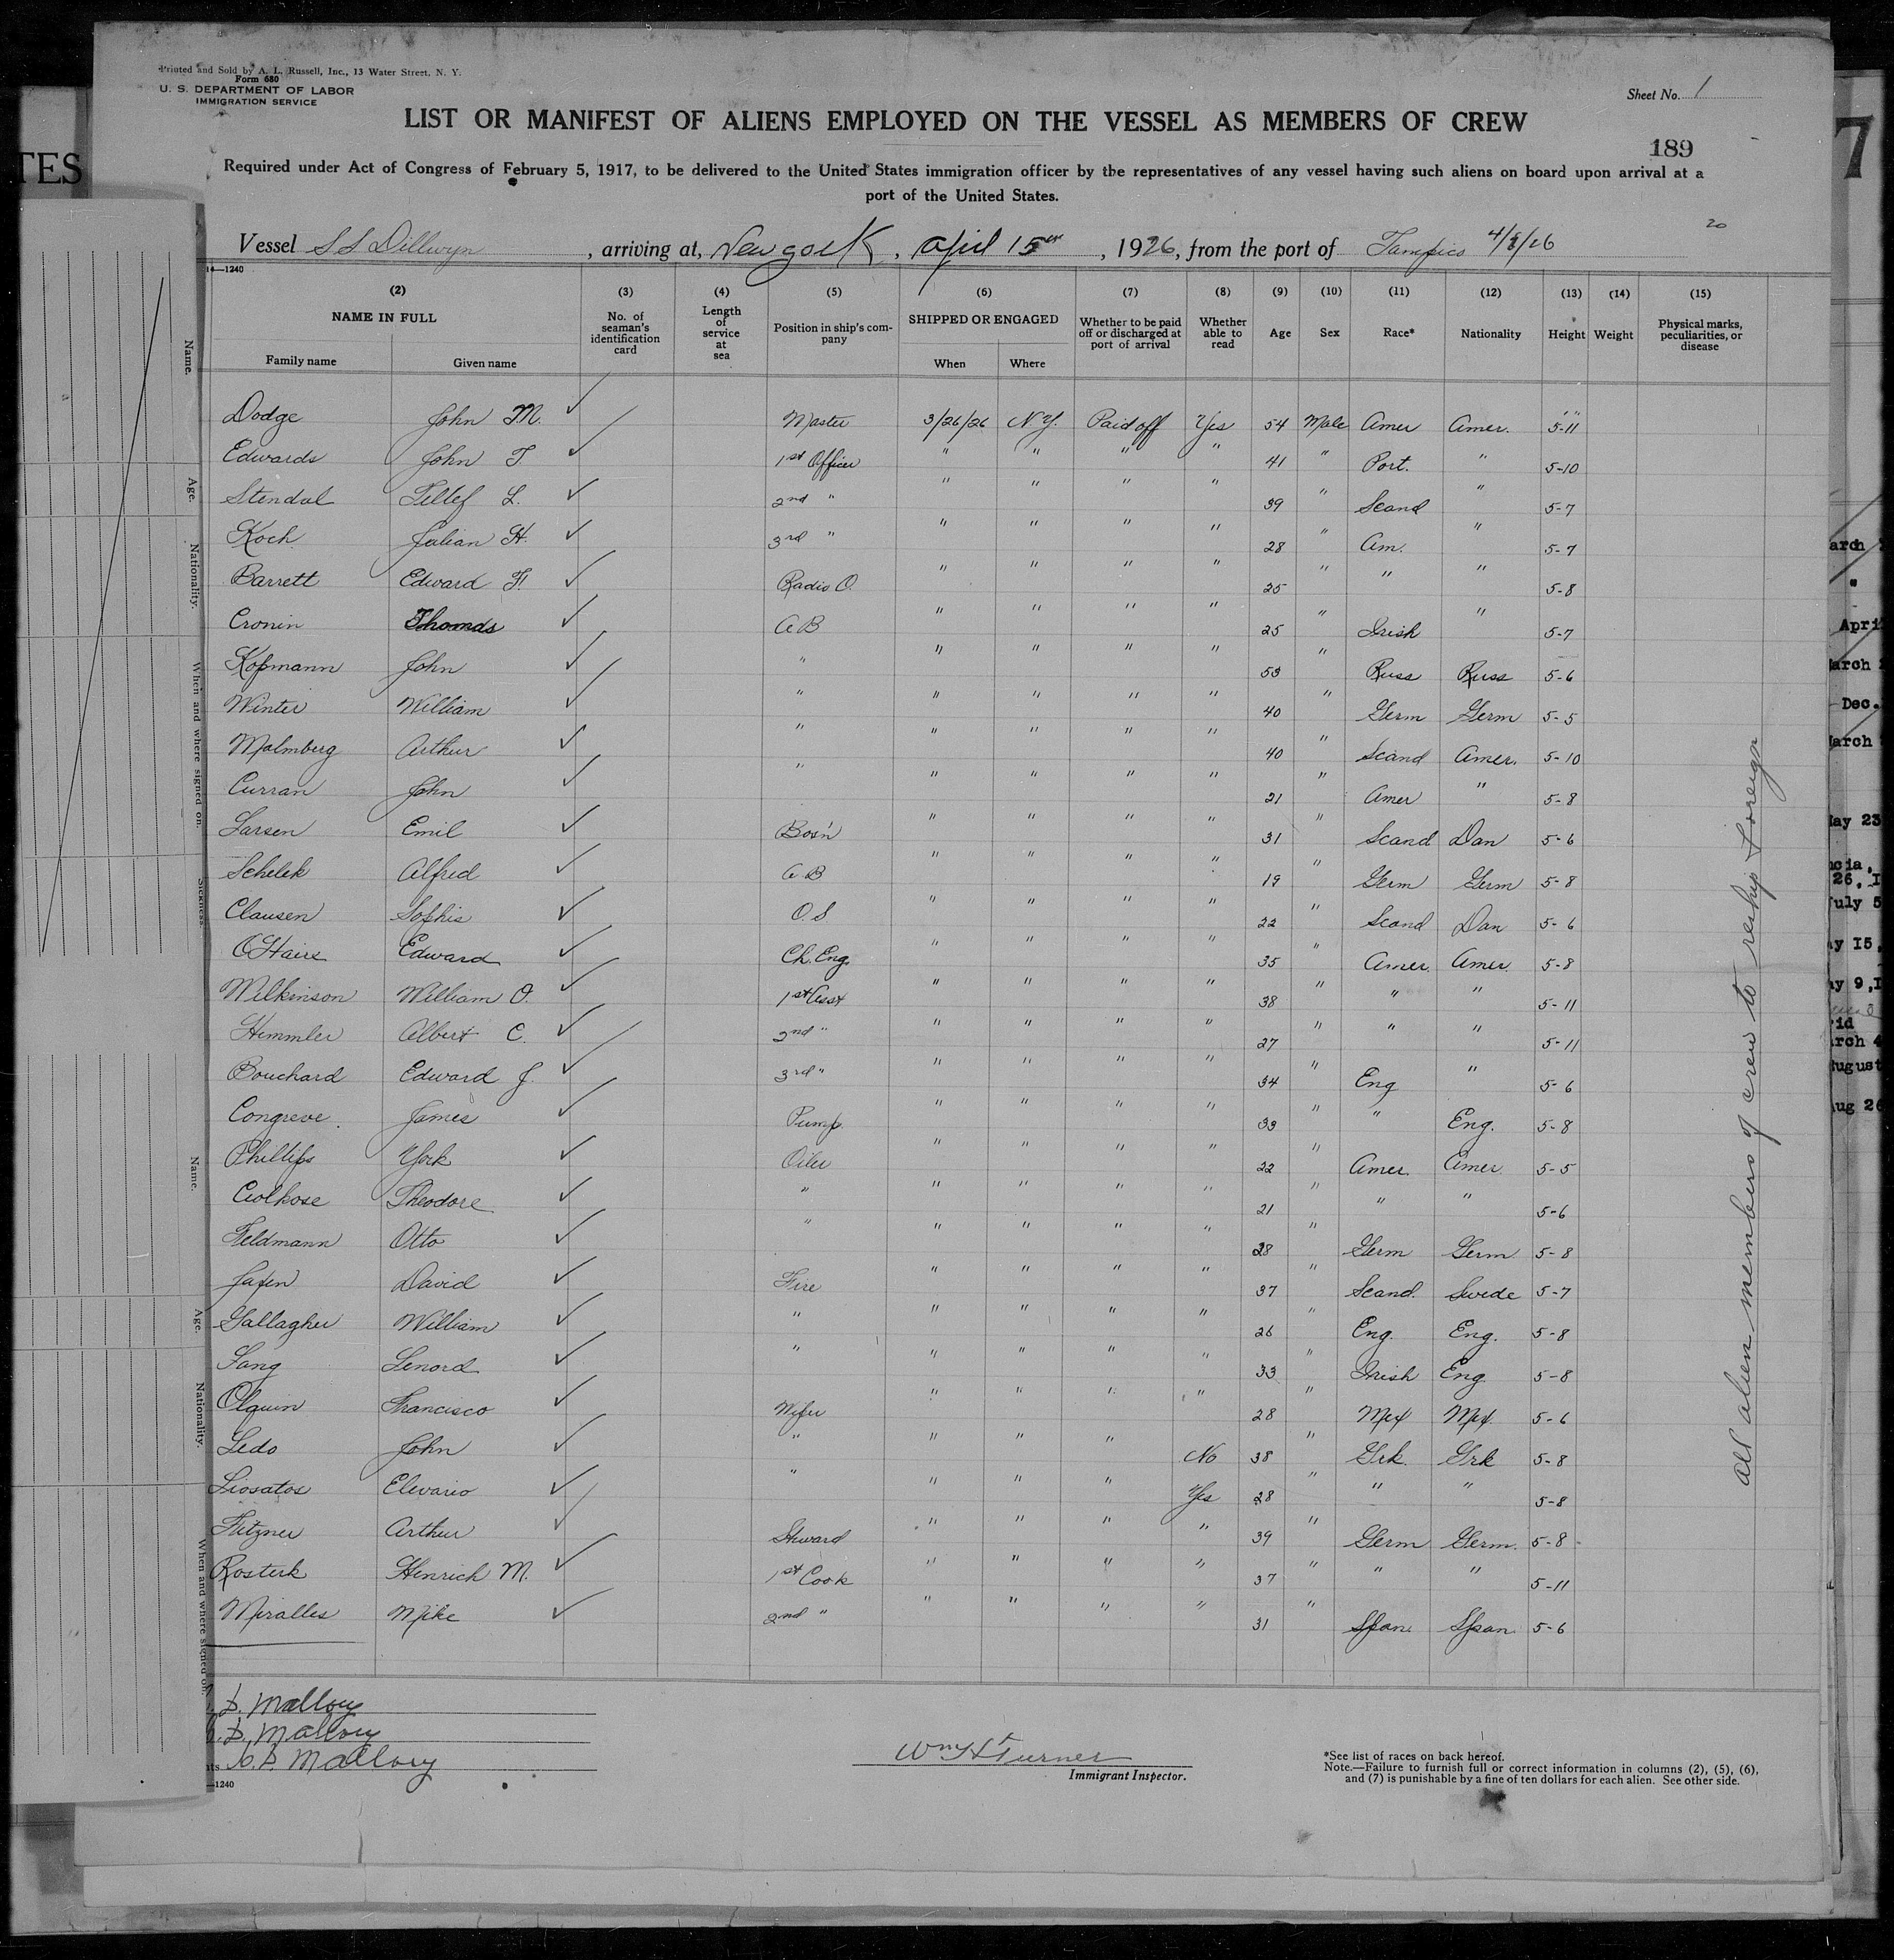 Printed and Sold by A. L. Russell, Inc., 13 Water Street, N. Y.
Form 680
U. S. DEPARTMENT OF LABOR
IMMIGRATION SERVICE
Sheet No. 1
LIST OR MANIFEST OF ALIENS EMPLOYED ON THE VESSEL AS MEMBERS OF CREW
189
Required under Act of Congress of February 5, 1917, to be delivered to the United States immigration officer by the representatives of any vessel having such aliens on board upon arrival at a
port of the United States.
20
Vessel SS Dillwyn, arriving at, New York, April 15th, 1926, from the port of Tampico 4/8/26
14—1240
(2) (3) (4) (5) (6) (7) (8) (9) (10) (11) (12) (13) (14) (15)
NAME IN FULL No. of seaman's identification card Length of service at sea Position in ship's company SHIPPED OR ENGAGED Whether to be paid off or discharged at port of arrival Whether able to read Age Sex Race* Nationality Height Weight Physical marks, peculiarities, or disease
Family name Given name When Where
Dodge John M. ✓ Master 3/26/26 N.Y. Paid off Yes 54 Male Amer Amer. 5-11
Edwards John T. ✓ 1st Officer " " " " 41 " Port. " 5-10
Stendal Tellef L. ✓ 2nd " " " " " 39 " Scand " 5-7
Koch Julian H. ✓ 3rd " " " " " 28 " Am. " 5-7
Barrett Edward F. ✓ Radio O. " " " " 25 " " " 5-8
Cronin Thomas ✓ AB " " " " 25 " Irish " 5-7
Kopmann John ✓ " " " " " 53 " Russ Russ 5-6
Winter William ✓ " " " " " 40 " Germ Germ 5-5
Malmberg Arthur ✓ " " " " " 40 " Scand Amer. 5-10
Curran John ✓ " " " " " 21 " Amer " 5-8
Larsen Emil ✓ Bos'n " " " " 31 " Scand Dan 5-6
Schelek Alfred ✓ AB " " " " 19 " Germ Germ 5-8
Clausen Sophis ✓ O.S " " " " 22 " Scand Dan 5-6
O'Haire Edward ✓ Ch. Eng. " " " " 35 " Amer. Amer. 5-8
Wilkinson William O. ✓ 1st Asst " " " " 38 " " " 5-11
Himmler Albert C. ✓ 2nd " " " " " 27 " " " 5-11
Bouchard Edward J. ✓ 3rd " " " " " 34 " Eng " 5-6
Congreve James ✓ Pump. " " " " 33 " " Eng. 5-8
Phillips York ✓ Oiler " " " " 22 " Amer. Amer. 5-5
Ciolkose Theodore ✓ " " " " " 21 " " " 5-6
Feldmann Otto ✓ " " " " " 28 " Germ Germ 5-8
David ✓ Fire " " " " 37 " Scand. Swede 5-7
Gallagher William ✓ " " " " " 26 " Eng. Eng. 5-8
Lang Lenord ✓ " " " " " 33 " Irish Eng 5-8
Olquin Francisco ✓ Wiper " " " " 28 " Mex Mex 5-6
Ledo John ✓ " " " " No 38 " Grk. Grk 5-8
Liosatos Elevario ✓ " " " " Yes 28 " " " 5-8
Fitzner Arthur ✓ Steward " " " " 39 " Germ Germ. 5-8
Rosterk Henrich M. ✓ 1st Cook " " " " 37 " " " 5-11
Miralles Mike ✓ 2nd " " " " " 31 " Span. Span. 5-6
All alien members of crew to reship foreign
D. Mallory
D. Mallory
D. Mallory
Wm H Turner
Immigrant Inspector.
—1240
*See list of races on back hereof.
Note.—Failure to furnish full or correct information in columns (2), (5), (6),
and (7) is punishable by a fine of ten dollars for each alien. See other side.
Name.
Age.
Nationality.
When and where signed on.
Sickness.
Name.
Age.
Nationality.
When and where signed on.
TES
7
arch
"
Apri
arch
Dec.
arch
ay 23
cia,
26, I
uly 5
y 15,
y 9, I
id
rch 4
ugust
ug 26